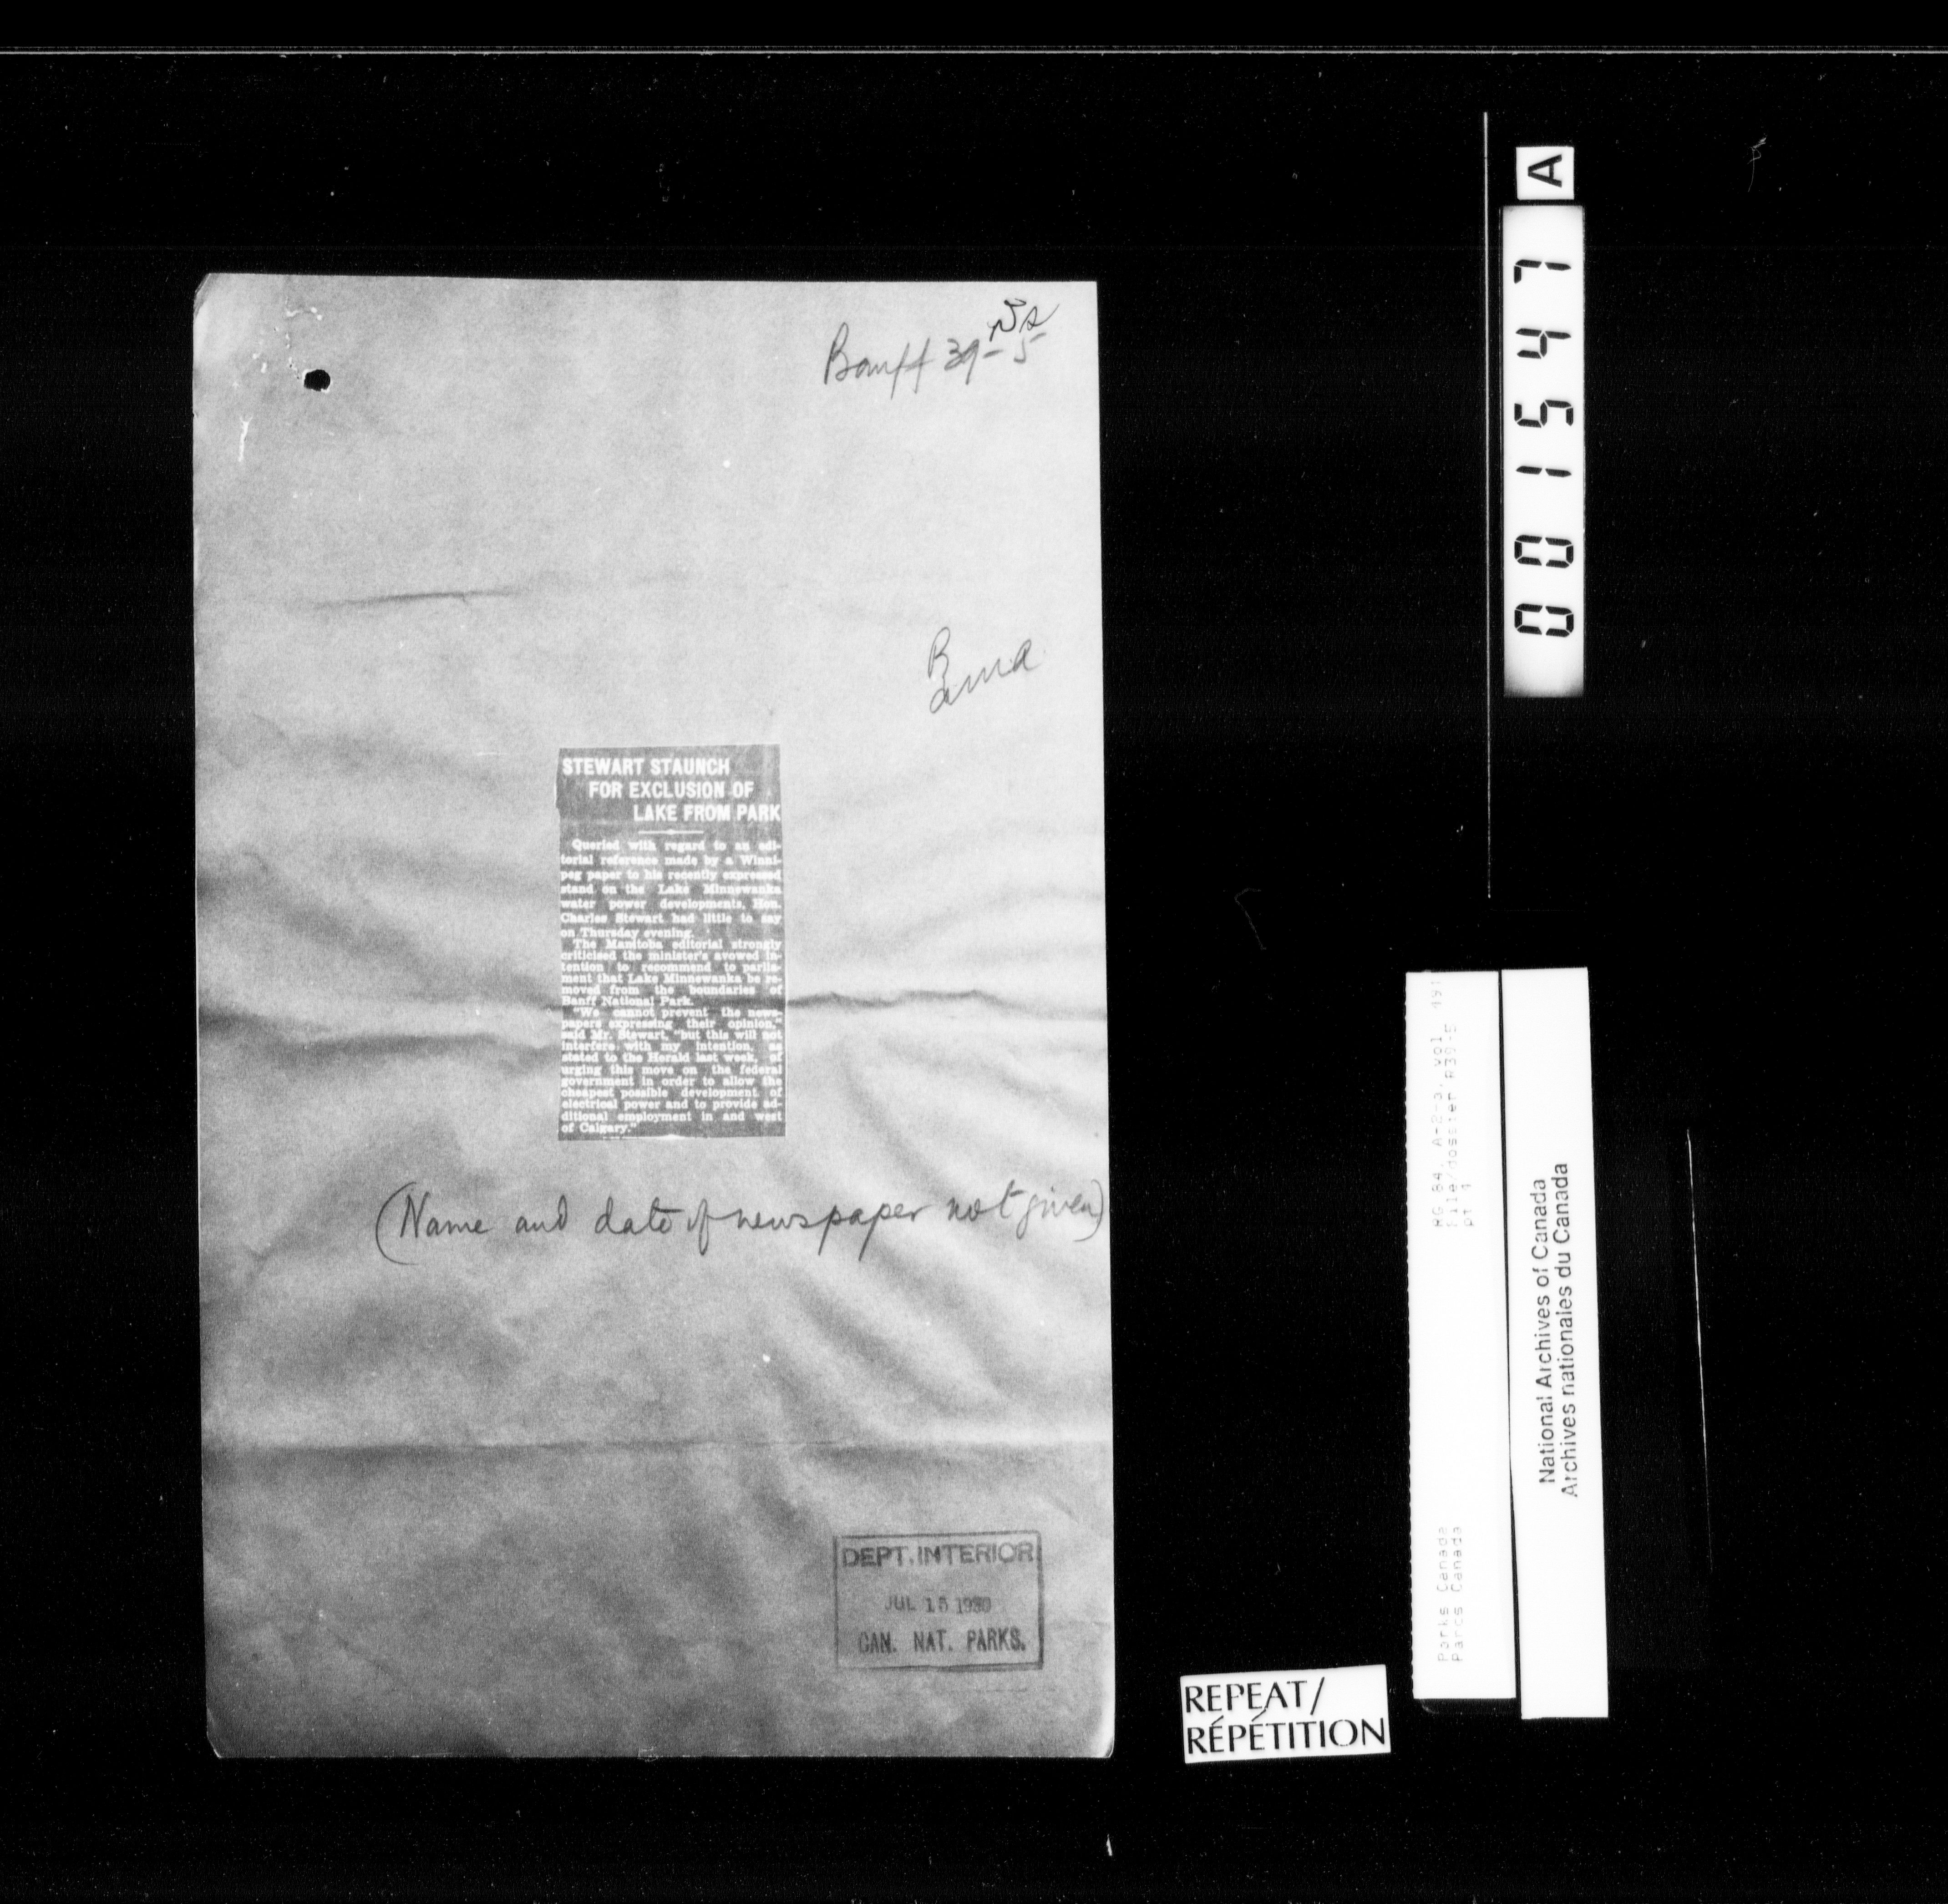 Banff 39-5
STEWART STAUNCH
FOR EXCLUSION OF
LAKE FROM PARK
Queried with regard to an edi-
torial reference made by a Winni-
peg paper to his recently expressed
stand on the Lake Minnewanka
water power developments, Hon.
Charles Stewart had little to say
on Thursday evening.
The Manitoba editorial strongly
criticised the minister's avowed in-
tention to recommend to parlia-
ment that Lake Minnewanka be re-
moved from the boundaries of
Banff National Park.
"We cannot prevent the news-
papers expressing their opinion,"
said Mr. Stewart, "but this will not
interfere with my intention, as
stated to the Herald last week, of
urging this move on the federal
government in order to allow the
cheapest possible development of
electrical power and to provide ad-
ditional employment in and west
of Calgary."
(Name and date of newspaper not given)
DEPT. INTERIOR
JUL 15 1930
CAN. NAT. PARKS.
A
001547
RG 84, A-2-a, vol. 191
File/dossier R39-5
pt 1
Parks Canada
Parcs Canada
National Archives of Canada
Archives nationales du Canada
REPEAT/
RÉPÉTITION